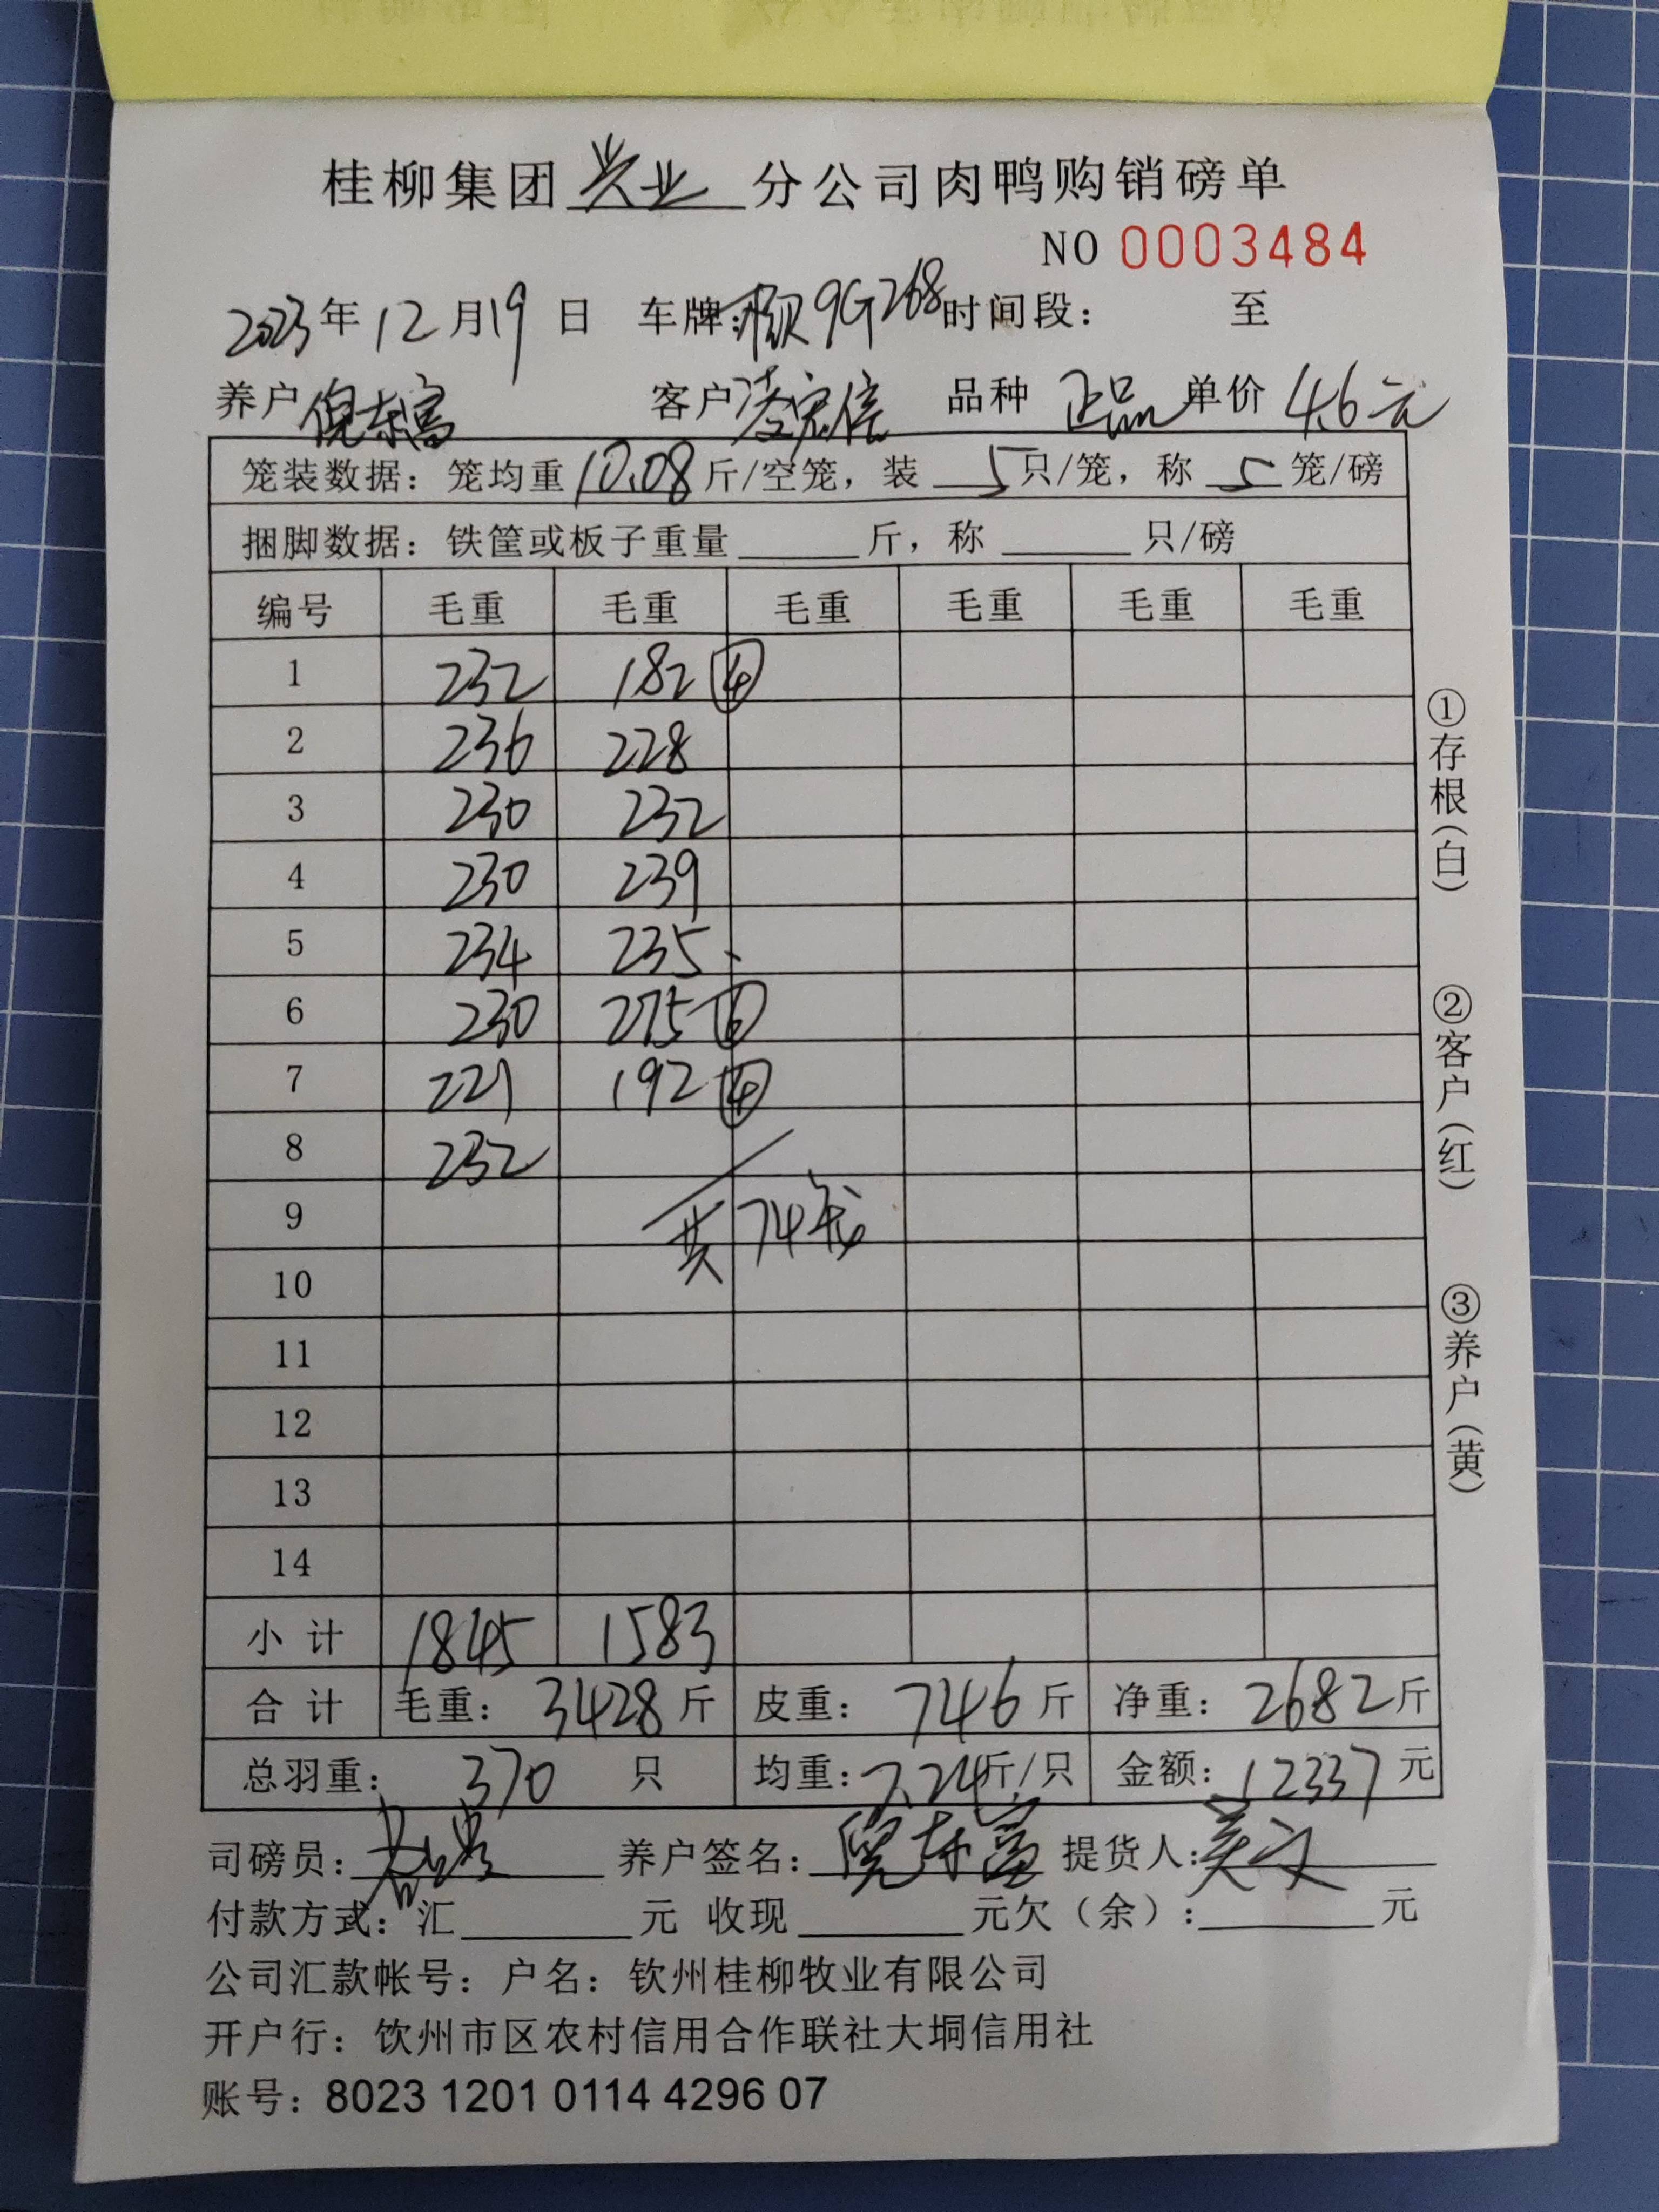 桂柳集团兴业分公司肉鸭购销磅单
NO 0003484
2023年12月19日 车牌: 9G268 时间段: 至
养户 倪东富 客户 凌宏信 品种 正品 单价 4.6元
笼装数据: 笼均重10.08斤/空笼, 装 5只/笼, 称 5笼/磅
捆脚数据: 铁筐或板子重量______斤, 称______只/磅
编号 毛重 毛重 毛重 毛重 毛重 毛重
1 232 182 ④
2 236 228
3 230 232
4 230 239
5 234 235
6 230 275 ⑥
7 221 192 ④
8 232
9 共74笼
10
11
12
13
14
小计 1845 1583
合计 毛重: 3428斤 皮重: 746斤 净重: 2682斤
总羽重: 370 只 均重: 7.24斤/只 金额: 12337元
司磅员: 养户签名: 倪东富 提货人:
付款方式: 汇______元 收现______元欠（余）:______元
公司汇款帐号: 户名: 钦州桂柳牧业有限公司
开户行: 饮州市区农村信用合作联社大垌信用社
账号: 8023 1201 0114 4296 07
①存根(白)
②客户(红)
③养户(黄)